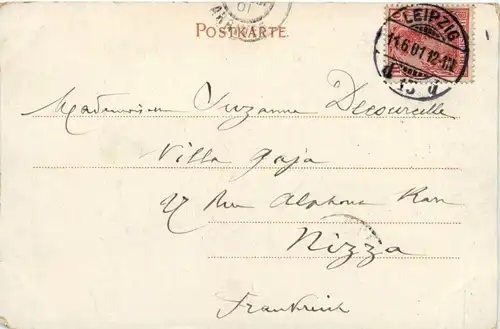 POSTKARTE.
LEIPZIG
11.6.01.12-1N
d 13 d
Mademoiselle Suzanne Decourcelle
Villa Gaja
27 Rue Alphonse Karr
Nizza
Frankreich